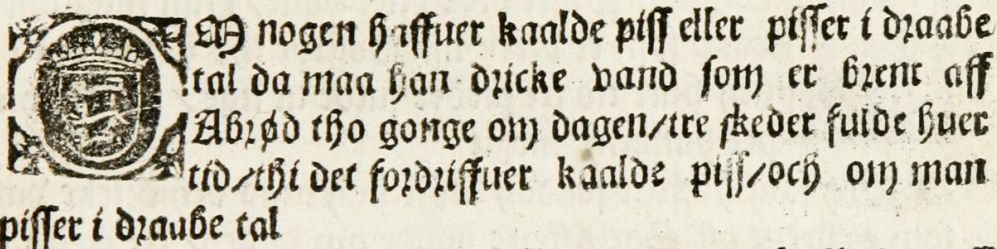 OM nogen haffuer kaalde piss eller pisser i draabe
tal da maa han dricke vand som er brent aff
Abrød tho gonge om dagen/tre skeder fulde huer
tid/thi det fordriffuer kaalde piss/och om man
pisser i draube tal